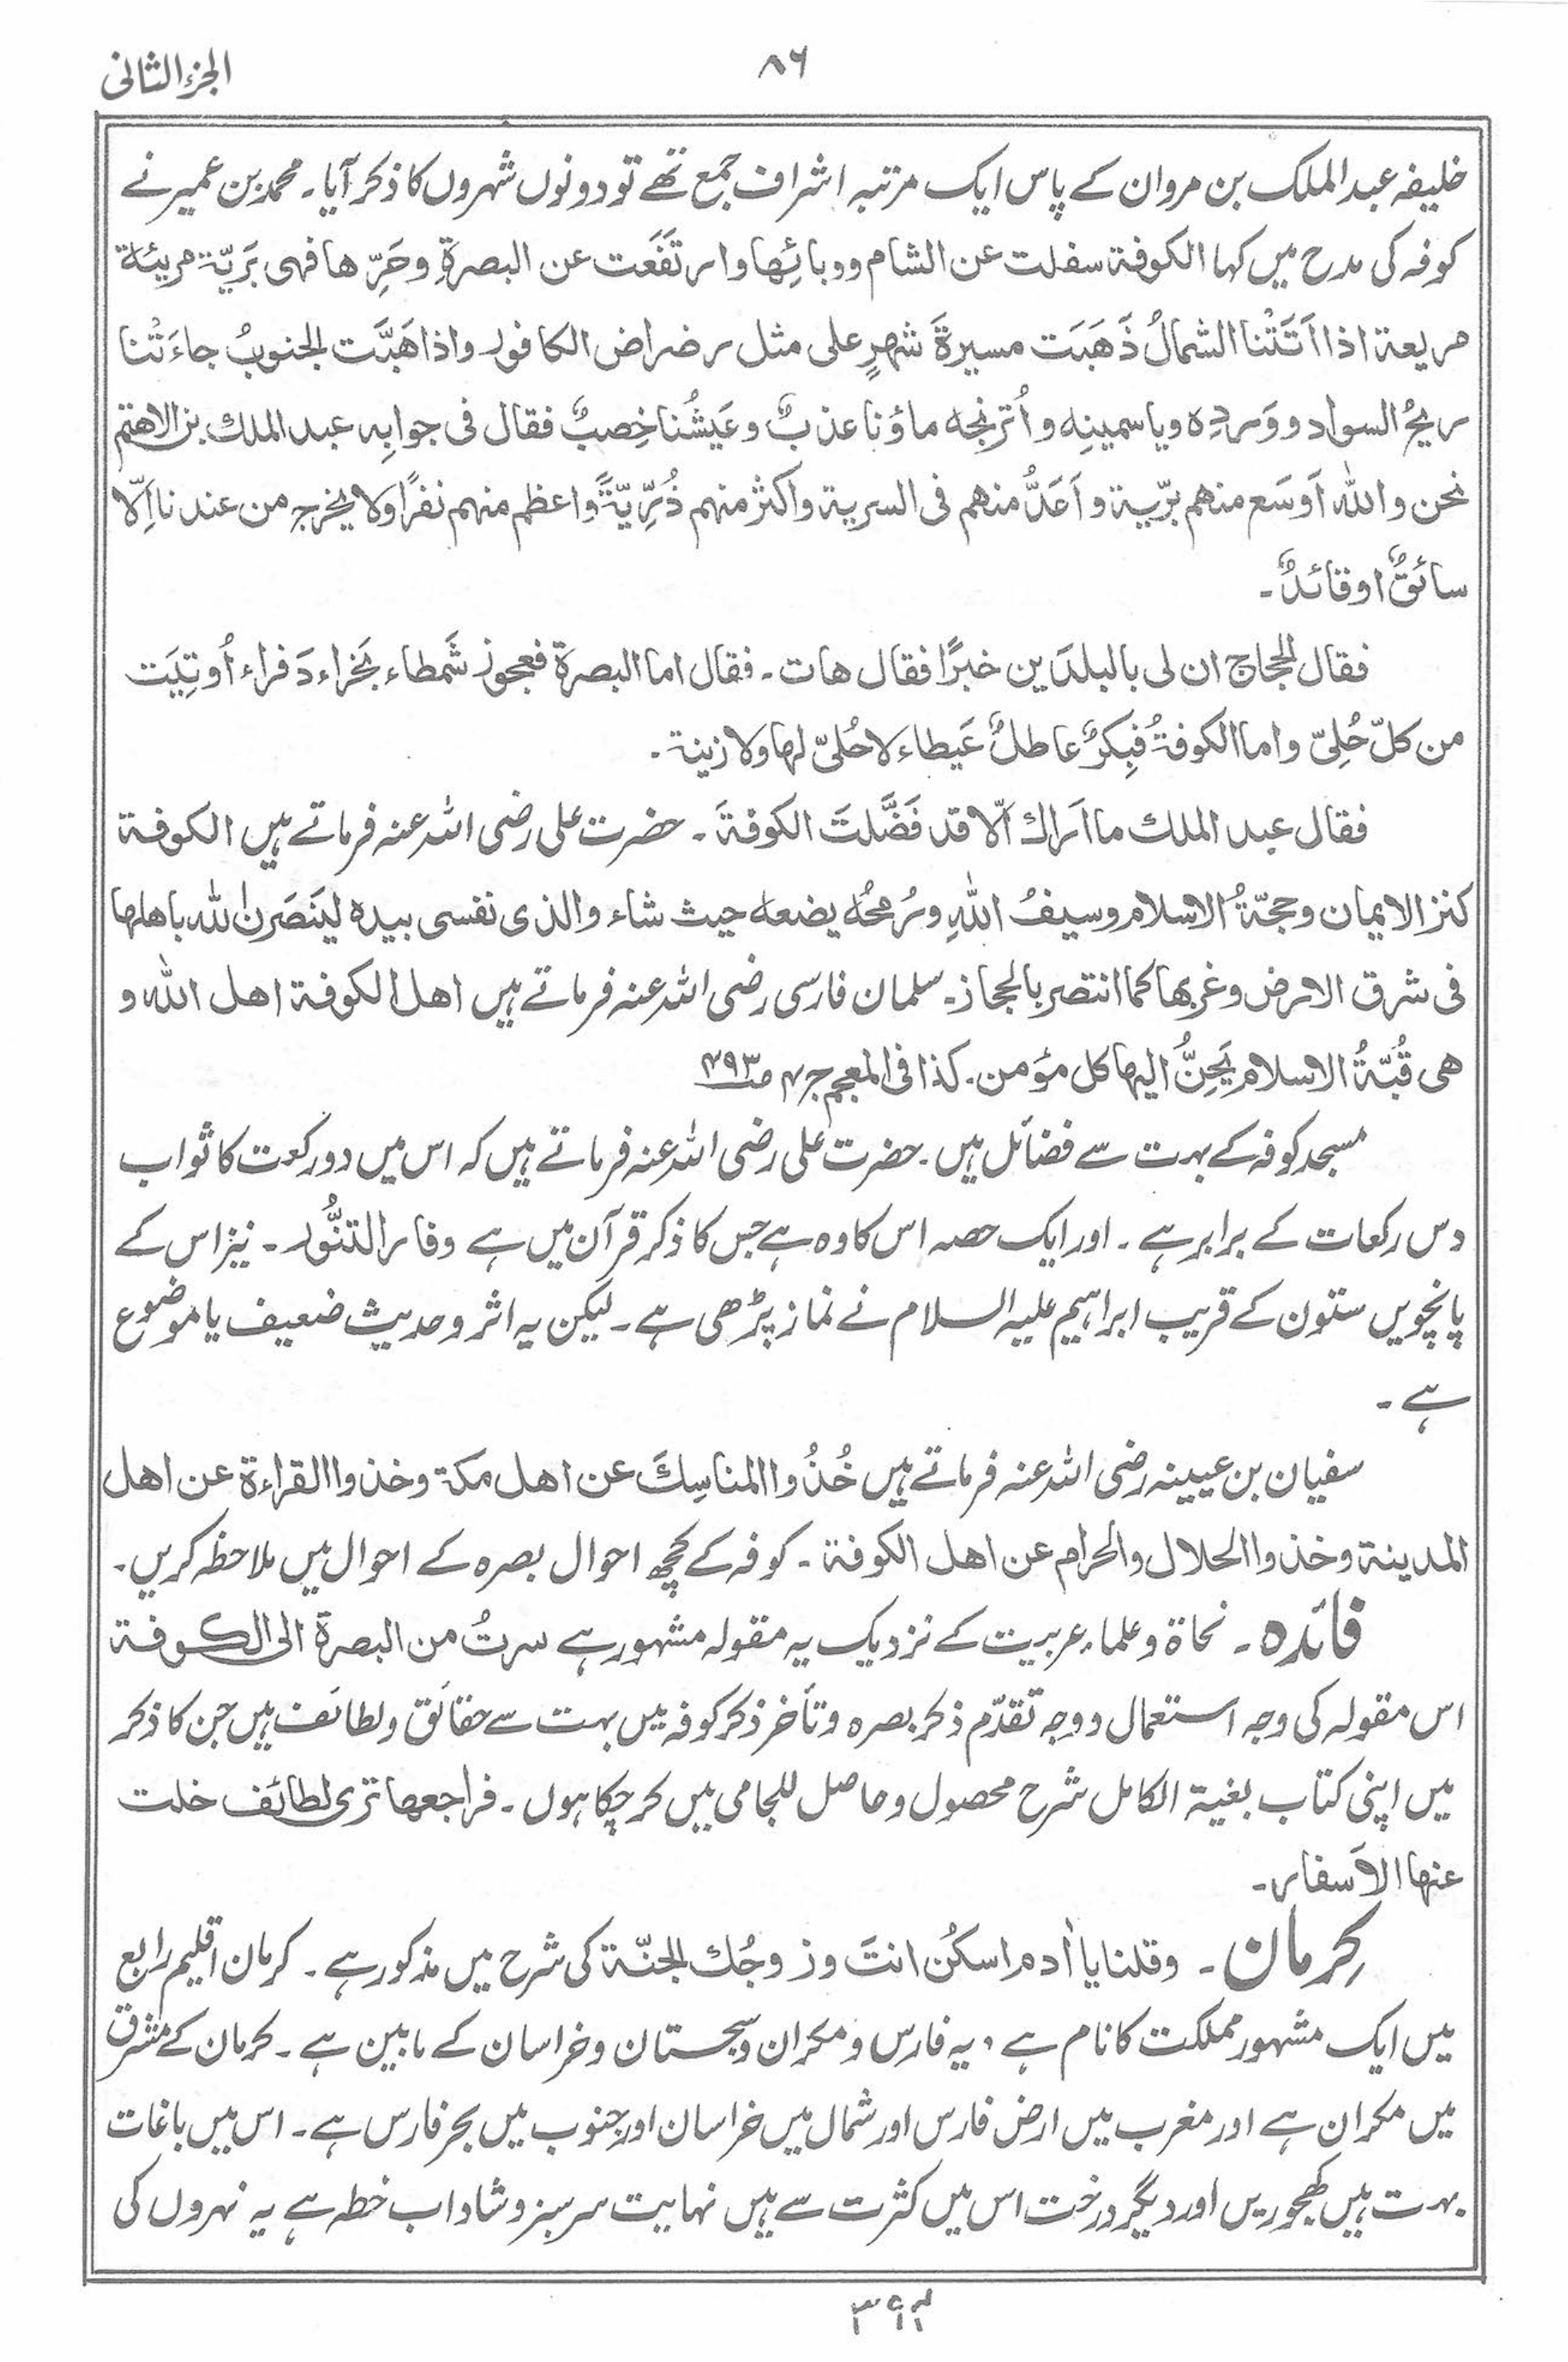 ۸۶
الجزء الثانی
خلیفہ عبدالملک بن مروان کے پاس ایک مرتبہ اشراف جمع تھے تو دونوں شہروں کا ذکر آیا۔ محمد بن عمیر نے
کوفہ کی مدح میں کہا الکوفۃ سفلت عن الشام ووبائِہا وارتَفَعَت عن البصرۃِ وحَرِّھا فھی بَرِیّۃ مریئۃ
مریعۃ اذا اَتَتْنا الشمالُ ذَھَبَت مسیرۃَ شھرٍ علی مثل رضراض الکافور واذا ھَبَّت الجنوبُ جاءَتْنا
ریحُ السواد ووَردِہ ویاسمینِہ واُترنجہ ماؤنا عذبٌ وعَیشُنا خِصبٌ فقال فی جوابِہ عبد الملک بن الاھتم
نحن واللہ اَوسَع منھم برّیۃ واَعَدُّ منھم فی السریۃ واکثر منھم ذُرِّیّۃً واعظم منھم نفرًا ولا یخرج من عندنا اِلّا
سائقٌ او قائدٌ۔
فقال الحجاج ان لی بالبلدَین خبرًا فقال ھات۔ فقال اما البصرۃ فعجوز شَمطاء بَخراء دَفراء اُوتِیَت
من کلّ حُلِیّ واما الکوفۃُ فبِکرٌ عاطلٌ عَیطاء لا حُلیّ لھا ولا زینۃ۔
فقال عبد الملک ما اَراک اِلّا قد فَضَّلتَ الکوفۃَ۔ حضرت علی رضی اللہ عنہ فرماتے ہیں الکوفۃ
کنز الایمان وحجّۃُ الاسلام وسیفُ اللہِ ورُمحُہ یضعہ حیث شاء والذی نفسی بیدہ لیَنصَرنّ اللہ باھلھا
فی شرق الارض وغربھا کما انتصر بالحجاز۔ سلمان فارسی رضی اللہ عنہ فرماتے ہیں اھل الکوفۃ اھل اللہ و
ھی قُبّۃُ الاسلام یَحِنُّ الیھا کل مؤمن۔ کذا فی المعجم ج۴ ص۴۹۳
مسجد کوفہ کے بہت سے فضائل ہیں۔ حضرت علی رضی اللہ عنہ فرماتے ہیں کہ اس میں دو رکعت کا ثواب
دس رکعات کے برابر ہے۔ اور ایک حصہ اس کا وہ ہے جس کا ذکر قرآن میں ہے وفار التنُّور۔ نیز اس کے
پانچویں ستون کے قریب ابراہیم علیہ السلام نے نماز پڑھی ہے۔ لیکن یہ اثر و حدیث ضعیف یا موضوع
ہے۔
سفیان بن عیینہ رضی اللہ عنہ فرماتے ہیں خُذُوا المناسِکَ عن اھل مکۃ وخذوا القراءۃ عن اھل
المدینۃ وخذوا الحلال والحرام عن اھل الکوفۃ۔ کوفہ کے کچھ احوال بصرہ کے احوال میں ملاحظہ کریں۔
فائدہ۔ نحاۃ و علماء عربیت کے نزدیک یہ مقولہ مشہور ہے سرتُ من البصرۃ الی الکوفۃ
اس مقولہ کی وجہ استعمال و وجہ تقدّم ذکر بصرہ و تأخر ذکر کوفہ میں بہت سے حقائق و لطائف ہیں جن کا ذکر
میں اپنی کتاب بغیۃ الکامل شرح محصول و حاصل للجامی میں کر چکا ہوں۔ فراجعھا تری لطائف خلت
عنھا الاَسفار۔
کِرمان۔ وقلنا یا اٰدم اسکُن انتَ وزوجُک الجنّۃ کی شرح میں مذکور ہے۔ کرمان اقلیم رابع
میں ایک مشہور مملکت کا نام ہے، یہ فارس و مکران و سجستان و خراسان کے مابین ہے۔ کرمان کے مشرق
میں مکران ہے اور مغرب میں ارض فارس اور شمال میں خراسان اور جنوب میں بحر فارس ہے۔ اس میں باغات
بہت ہیں کھجوریں اور دیگر درخت اس میں کثرت سے ہیں نہایت سرسبز و شاداب خطہ ہے یہ نہروں کی